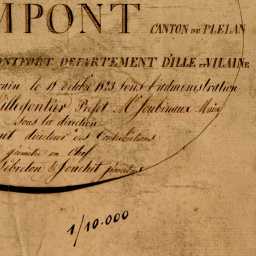 MPONT CANTON DE PLELAN
ONTFORT DÉPARTEMENT D'ILLE ET VILAINE
le 18 octobre 1823 sous l'administration
Préfet Mr Joubinaux Maire
sous la direction
directeur des Contributions
géomètre en Chef
Lebreton & Jouchet
1/10.000